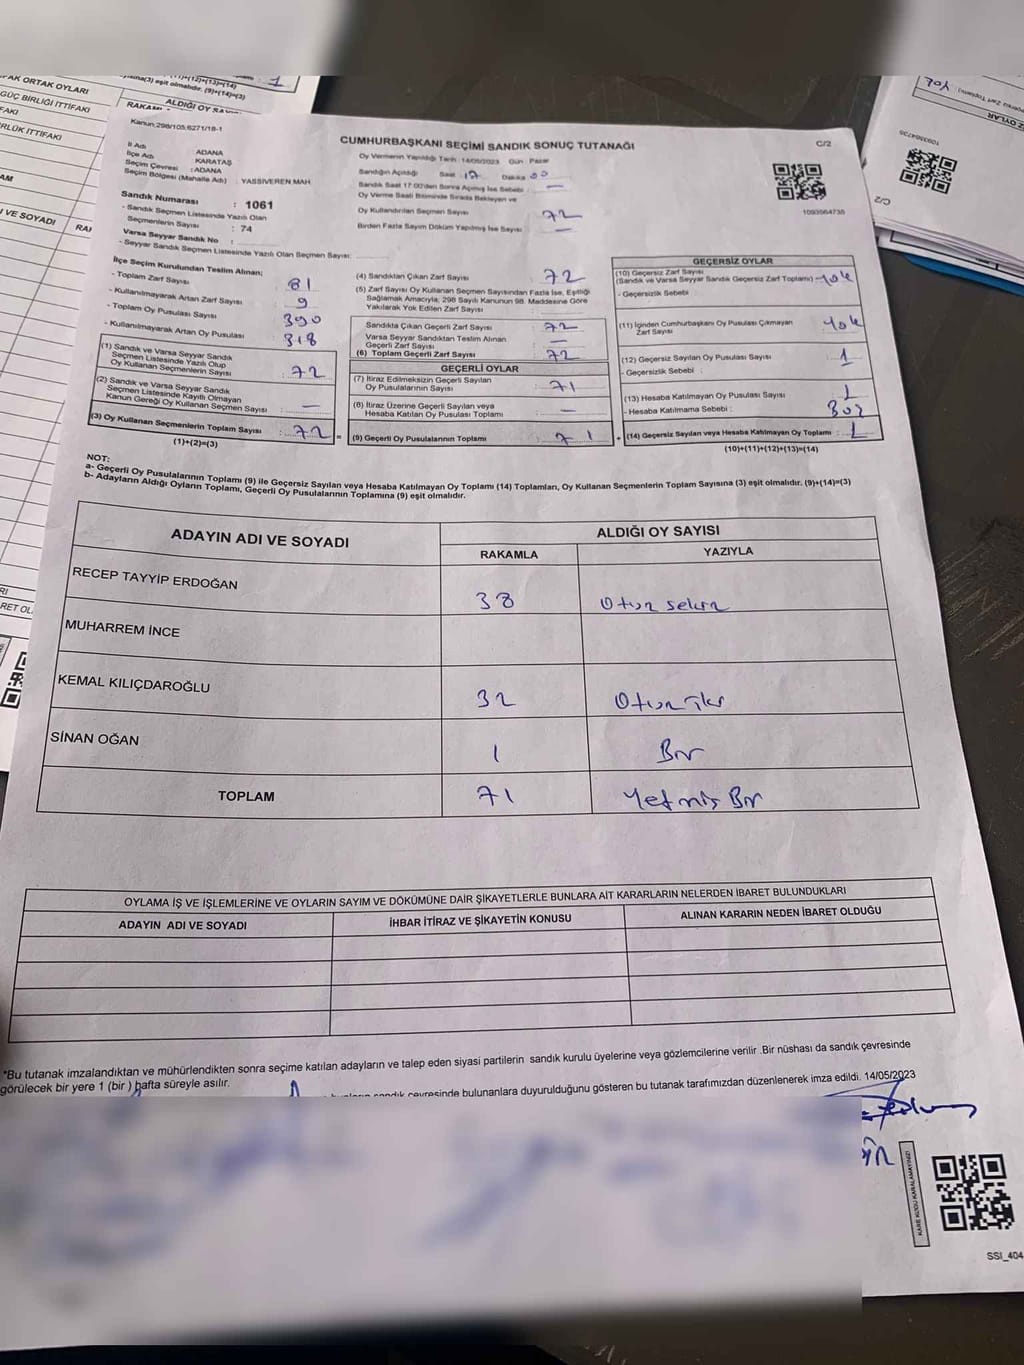 FAK ORTAK OYLARI
GÜÇ BİRLİĞİ İTTİFAKI
FAKI
RLÜK İTTİFAKI
AM
I VE SOYADI
eşit olmalıdır. (9)+(14)=(3)
1
ALDIĞI OY
Kanun:298/105,6271/18-1
CUMHURBAŞKANI SEÇİMİ SANDIK SONUÇ TUTANAĞI
C/2
İl Adı : ADANA
İlçe Adı : KARATAŞ
Seçim Çevresi : ADANA
Seçim Bölgesi (Mahalle Adı) : YASSIVEREN MAH
Sandık Numarası : 1061
- Sandık Seçmen Listesinde Yazılı Olan
Seçmenlerin Sayısı : 74
Varsa Seyyar Sandık No :
- Seyyar Sandık Seçmen Listesinde Yazılı Olan Seçmen Sayısı:
Oy Vermenin Yapıldığı Tarih : 14/05/2023 Gün : Pazar
Sandığın Açıldığı Saat : 17 Dakika : 00
Sandık Saat 17:00'den Sonra Açılmış İse Sebebi : —
Oy Verme Saati Bitiminde Sırada Bekleyen ve
Oy Kullandırılan Seçmen Sayısı 72
Birden Fazla Sayım Döküm Yapılmış İse Sayısı : —
1093964735
İlçe Seçim Kurulundan Teslim Alınan;
- Toplam Zarf Sayısı 81
- Kullanılmayarak Artan Zarf Sayısı 9
- Toplam Oy Pusulası Sayısı 390
- Kullanılmayarak Artan Oy Pusulası 318
(1) Sandık ve Varsa Seyyar Sandık
Seçmen Listesinde Yazılı Olup
Oy Kullanan Seçmenlerin Sayısı : 72
(2) Sandık ve Varsa Seyyar Sandık
Seçmen Listesinde Kayıtlı Olmayan
Kanun Gereği Oy Kullanan Seçmen Sayısı : —
(3) Oy Kullanan Seçmenlerin Toplam Sayısı : 72 =
(1)+(2)=(3)
(4) Sandıktan Çıkan Zarf Sayısı : 72
(5) Zarf Sayısı Oy Kullanan Seçmen Sayısından Fazla İse, Eşitliği
Sağlamak Amacıyla, 298 Sayılı Kanunun 98. Maddesine Göre
Yakılarak Yok Edilen Zarf Sayısı :
Sandıkta Çıkan Geçerli Zarf Sayısı : 72
Varsa Seyyar Sandıktan Teslim Alınan
Geçerli Zarf Sayısı : —
(6) Toplam Geçerli Zarf Sayısı : 72
GEÇERLİ OYLAR
(7) İtiraz Edilmeksizin Geçerli Sayılan
Oy Pusulalarının Sayısı : 71
(8) İtiraz Üzerine Geçerli Sayılan veya
Hesaba Katılan Oy Pusulası Toplamı : —
(9) Geçerli Oy Pusulalarının Toplamı : 71 +
GEÇERSİZ OYLAR
(10) Geçersiz Zarf Sayısı
(Sandık ve Varsa Seyyar Sandık Geçersiz Zarf Toplamı) : Yok
- Geçersizlik Sebebi :
(11) İçinden Cumhurbaşkanı Oy Pusulası Çıkmayan
Zarf Sayısı : Yok
(12) Geçersiz Sayılan Oy Pusulası Sayısı : 1
- Geçersizlik Sebebi :
(13) Hesaba Katılmayan Oy Pusulası Sayısı : 1
- Hesaba Katılmama Sebebi :
(14) Geçersiz Sayılan veya Hesaba Katılmayan Oy Toplamı : 1
(10)+(11)+(12)+(13)=(14)
NOT:
a- Geçerli Oy Pusulalarının Toplamı (9) ile Geçersiz Sayılan veya Hesaba Katılmayan Oy Toplamı (14) Toplamları, Oy Kullanan Seçmenlerin Toplam Sayısına (3) eşit olmalıdır. (9)+(14)=(3)
b- Adayların Aldığı Oyların Toplamı, Geçerli Oy Pusulalarının Toplamına (9) eşit olmalıdır.
ADAYIN ADI VE SOYADI
ALDIĞI OY SAYISI
RAKAMLA YAZIYLA
RECEP TAYYİP ERDOĞAN 38 Otuz sekiz
MUHARREM İNCE
KEMAL KILIÇDAROĞLU 32 Otuz iki
SİNAN OĞAN 1 Bir
TOPLAM 71 Yetmiş Bir
OYLAMA İŞ VE İŞLEMLERİNE VE OYLARIN SAYIM VE DÖKÜMÜNE DAİR ŞİKAYETLERLE BUNLARA AİT KARARLARIN NELERDEN İBARET BULUNDUKLARI
ADAYIN ADI VE SOYADI İHBAR İTİRAZ VE ŞİKAYETİN KONUSU ALINAN KARARIN NEDEN İBARET OLDUĞU
"Bu tutanak imzalandıktan ve mühürlendikten sonra seçime katılan adayların ve talep eden siyasi partilerin sandık kurulu üyelerine veya gözlemcilerine verilir .Bir nüshası da sandık çevresinde
görülecek bir yere 1 (bir ) hafta süreyle asılır.
sandık çevresinde bulunanlara duyurulduğunu gösteren bu tutanak tarafımızdan düzenlenerek imza edildi. 14/05/2023
KARE KODU KARALAMAYINIZ!
SSI_404